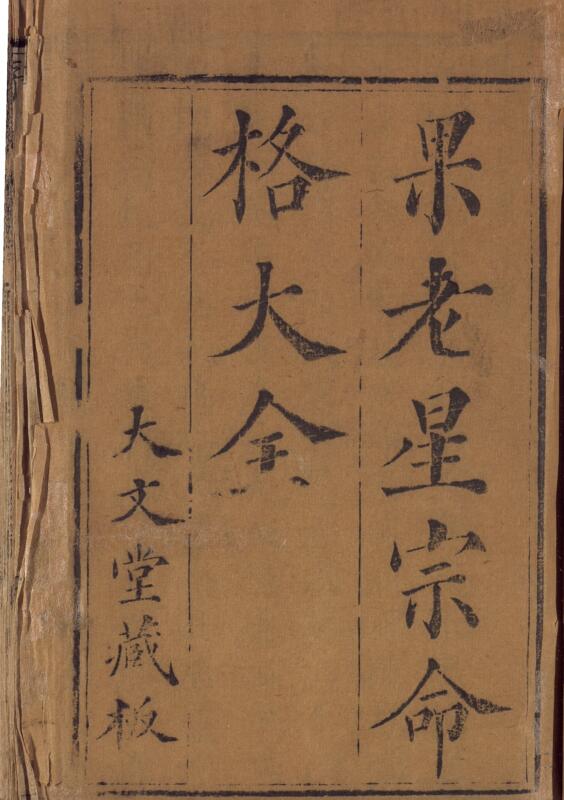 果老星宗命
格大全
大文堂藏板